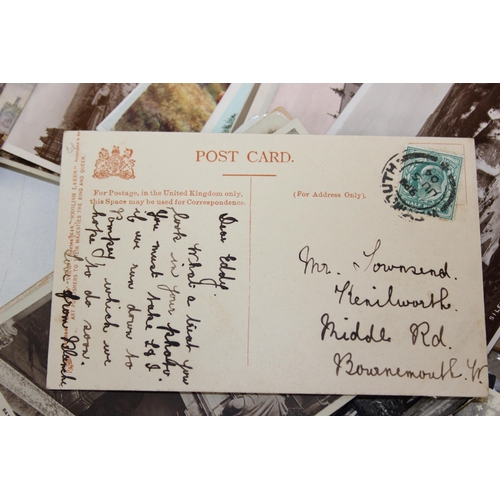 POST CARD.
For Postage, in the United Kingdom only,
this Space may be used for Correspondence.
(For Address Only).
Dear Eddy.
What a treat you
look in your photo.
You must take L & I
if we run down to
Pompey which we
hope to do soon.
from Blanche
Mr. Townsend.
Kenilworth.
Middle Rd.
Bournemouth. W.